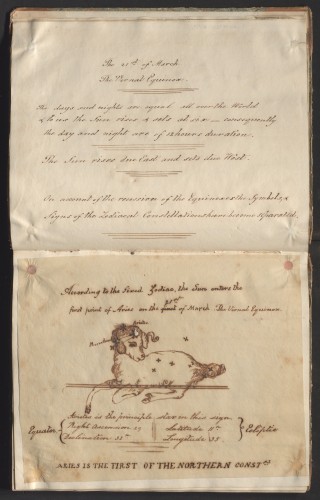 The 21st of March
The Vernal Equinox.
The days and nights are equal all over the World
& here the Sun rises & sets at six — consequently
the day and night are of 12 hours duration.
The Sun rises due East and sets due West.
On account of the recession of the Equinoxes the Symbols &
Signs of the Zodiacal Constellations have become separated.
According to the fixed Zodiac, the Sun enters the
first point of Aries on the 21st of March The Vernal Equinox.
Arietis
Arietis is the principle star in this sign.
Equator { Right Ascension
Declination } { Latitude
Longitude } Ecliptic
ARIES IS THE FIRST OF THE NORTHERN CONSTns